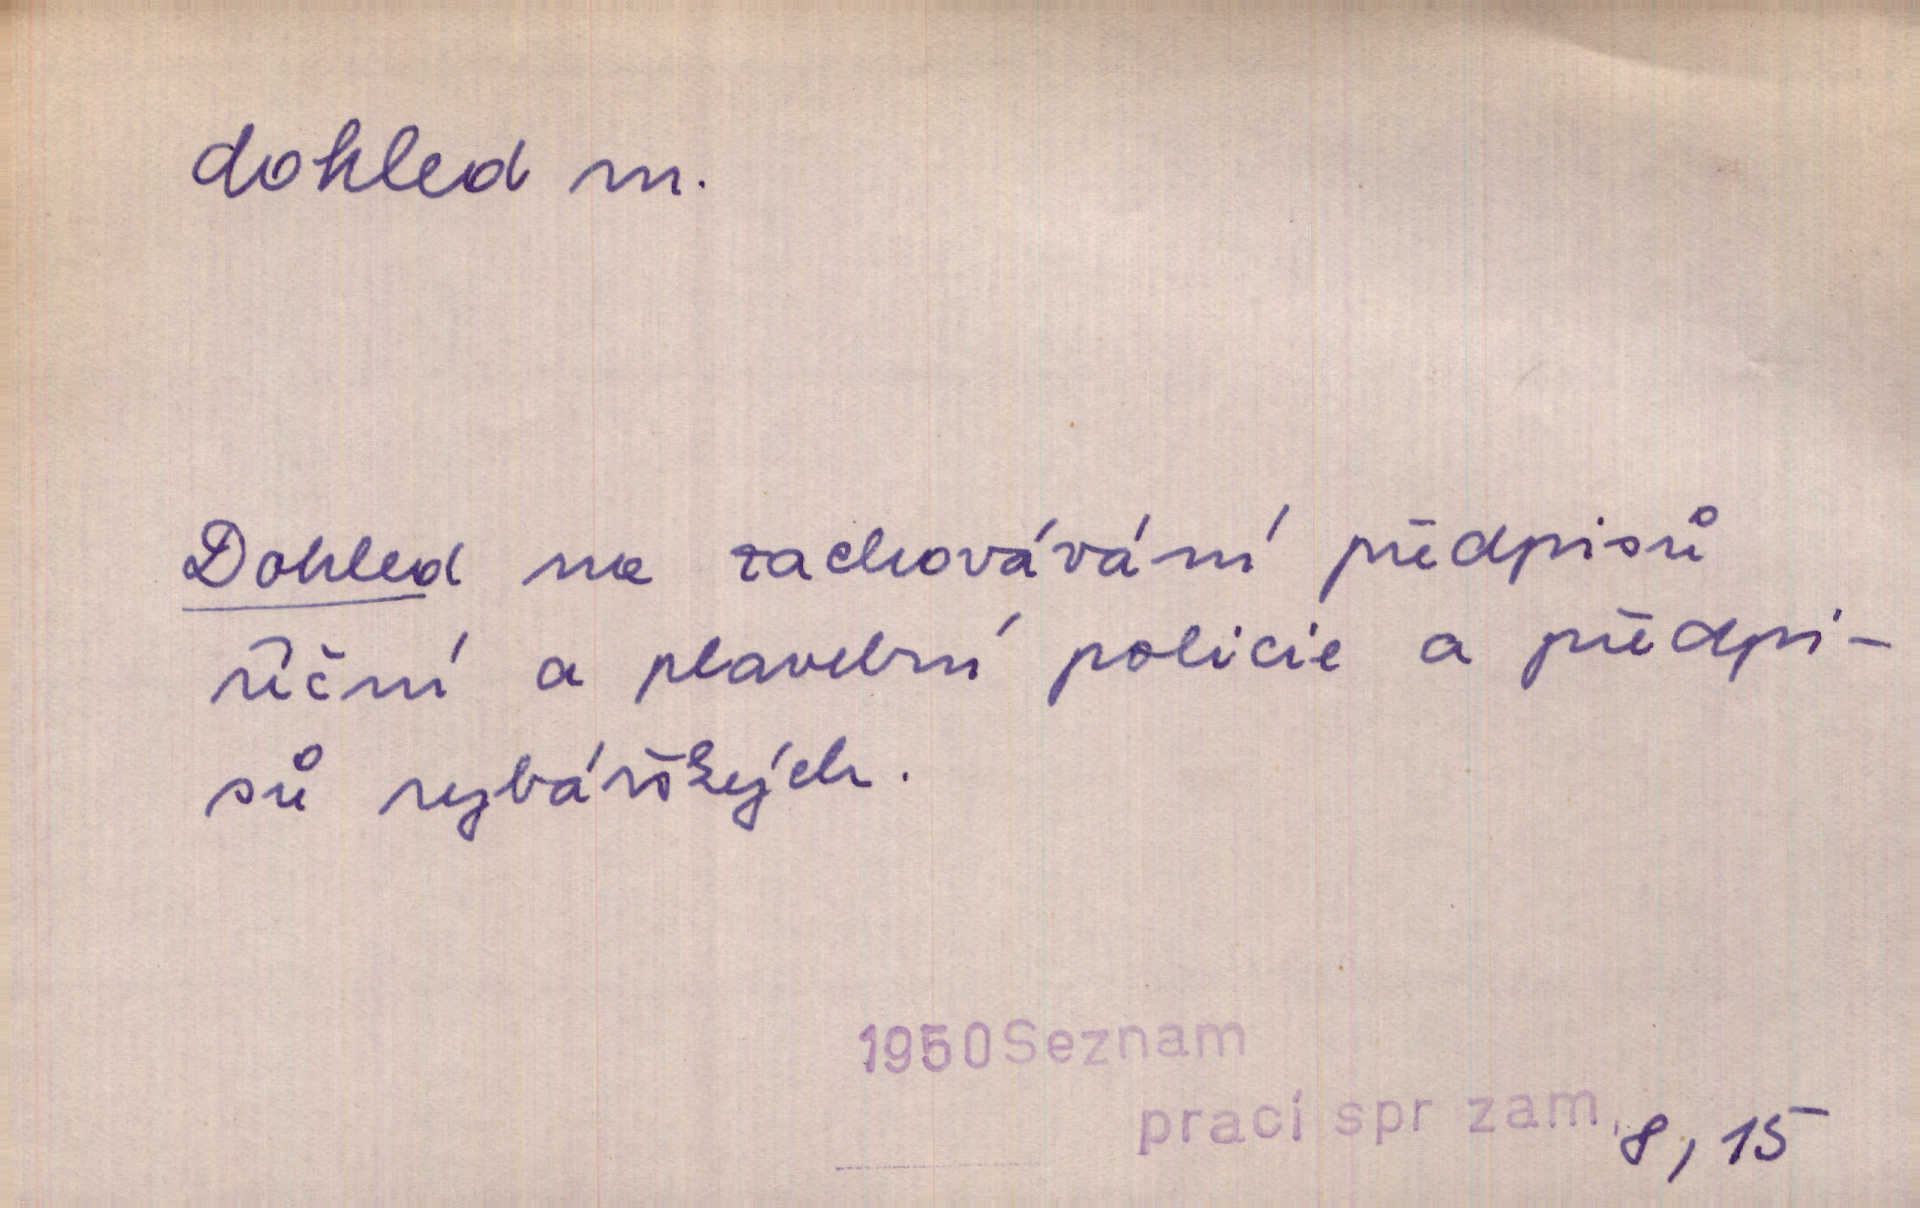 dohled m.
Dohled na zachovávání předpisů
říční a plavební policie a předpi-
sů rybářských.
1950 Seznam
prací spr zam, 8, 15